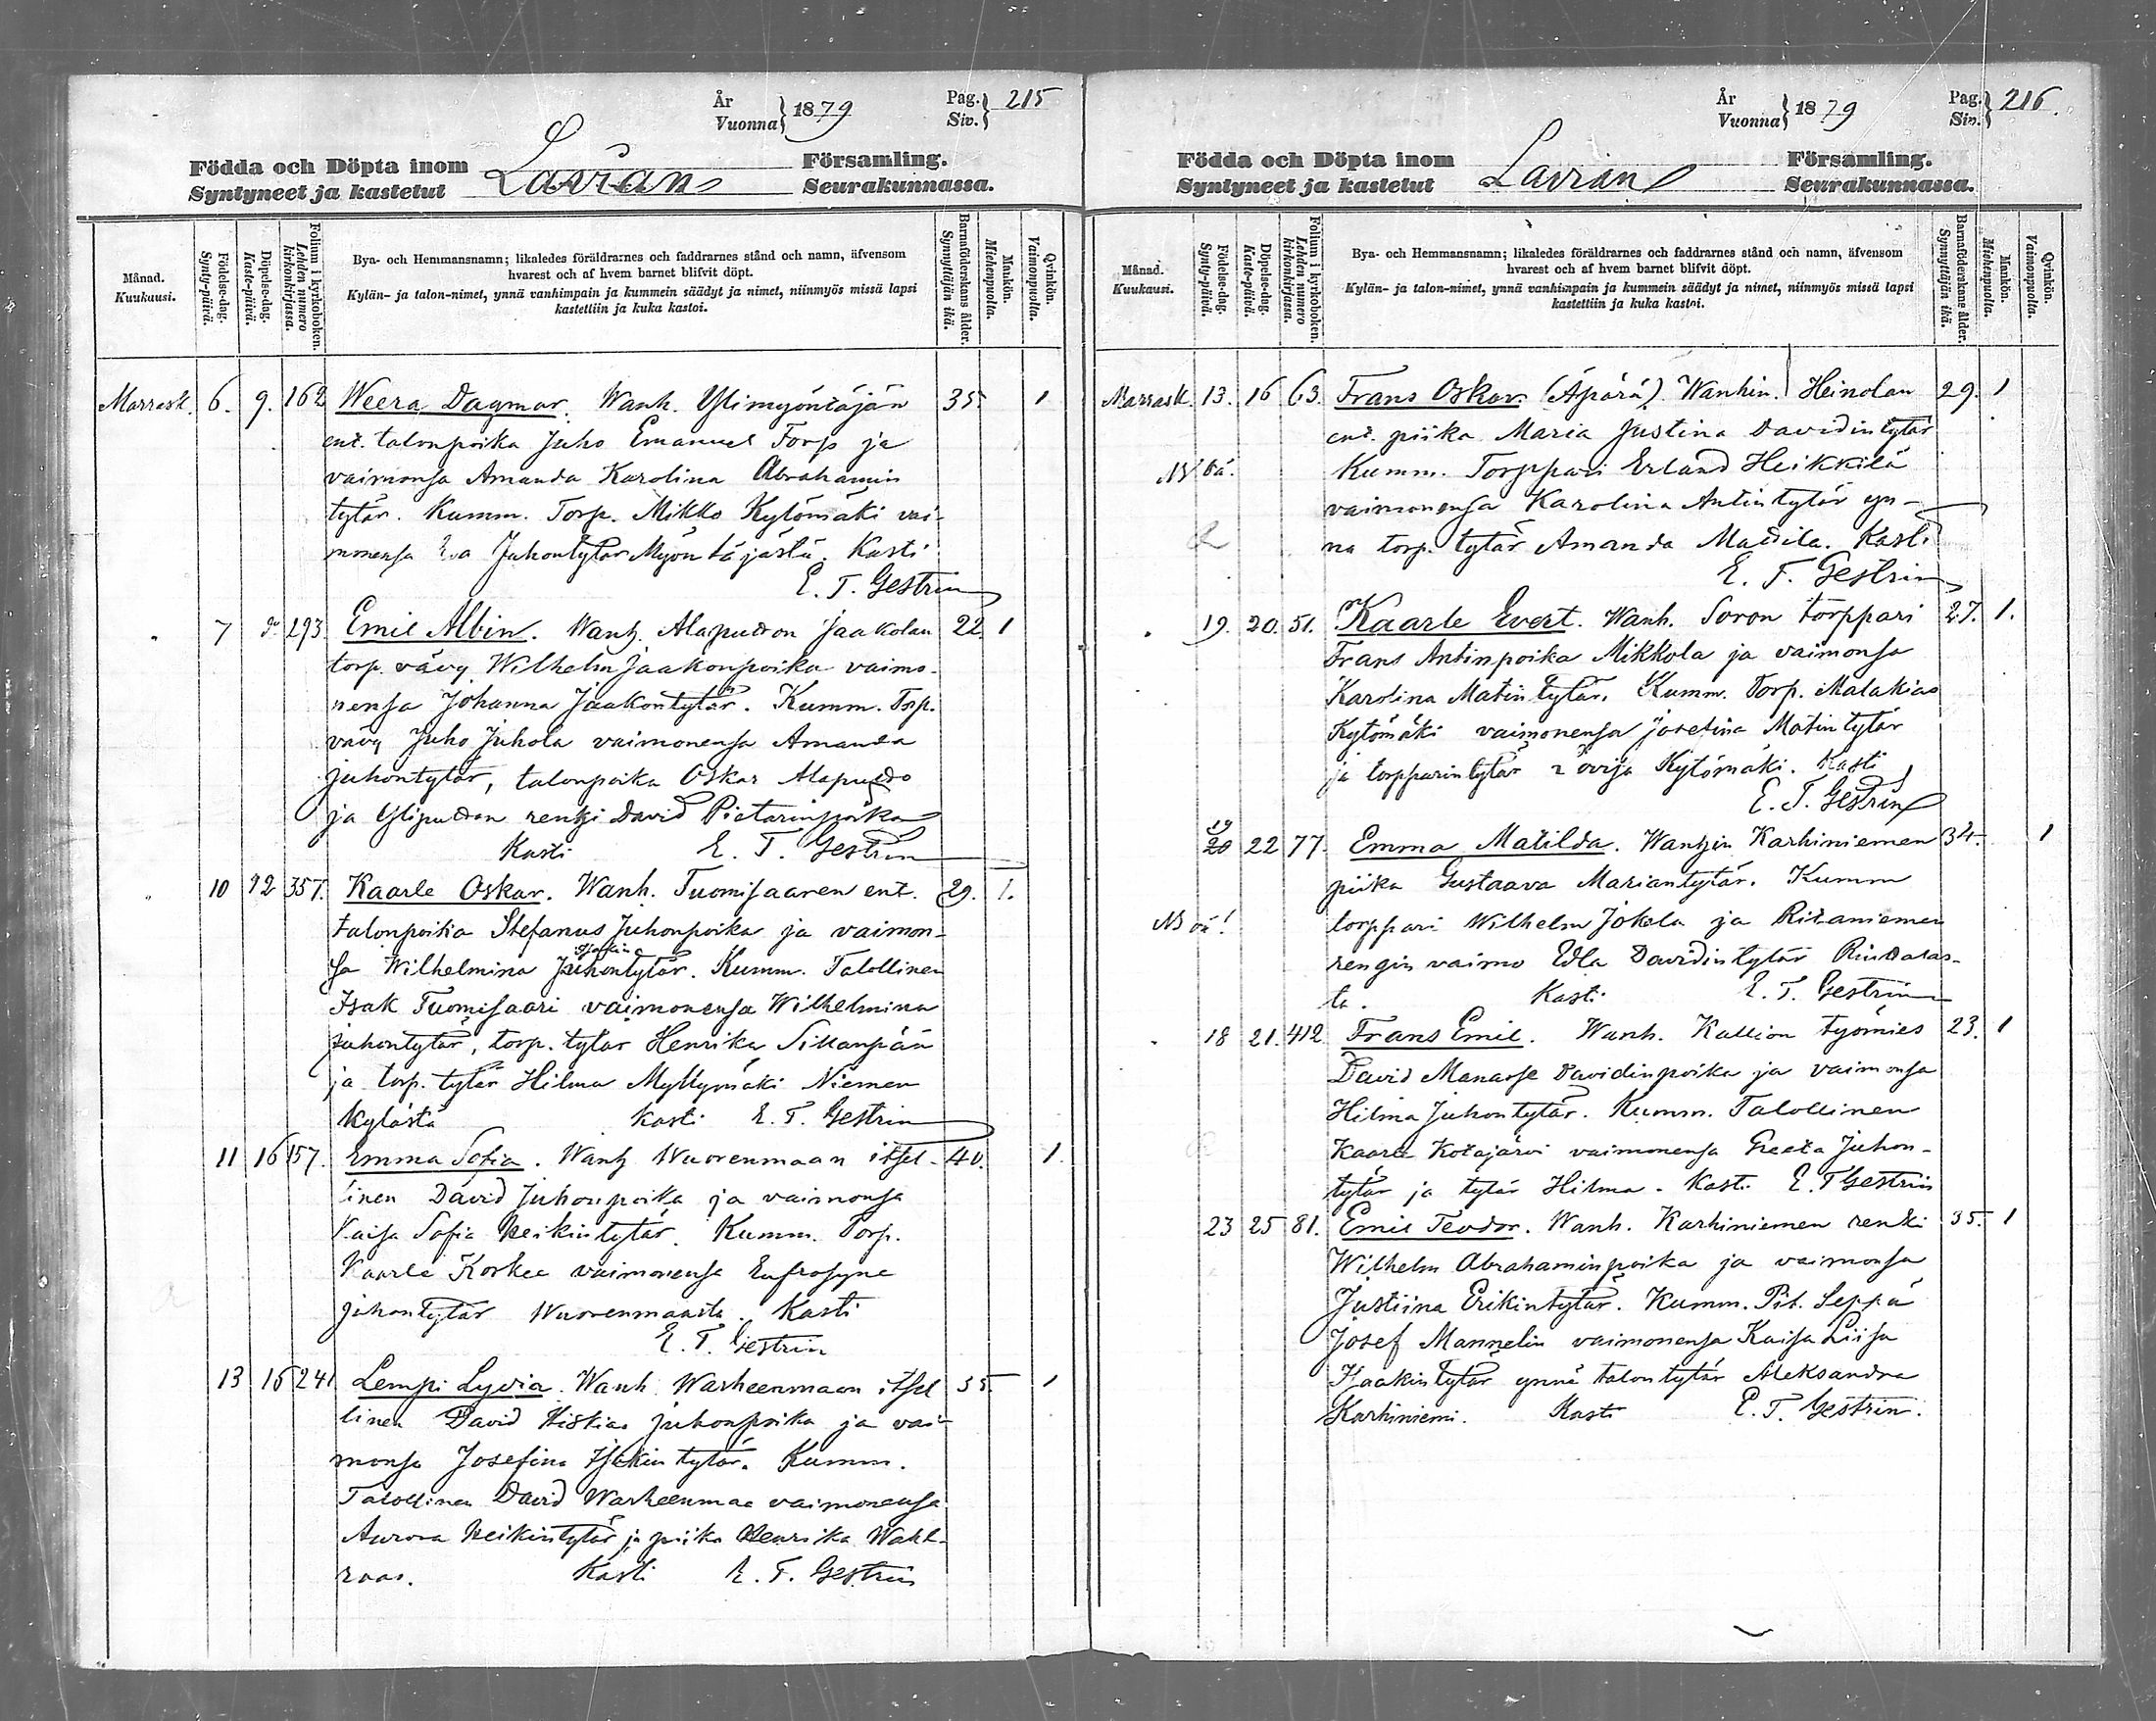 År
Vuonna } 1879
Pag.
Siv. } 215
Födda och Döpta inom Församling.
Syntyneet ja kastetut Lavian Seurakunnassa.
Månad. Kuukausi.
Födelse-dag. Synty-päivä.
Döpelse-dag. Kaste-päivä.
Folium i kyrkoboken. Lehden numero kirkonkirjassa.
Bya- och Hemmansnamn; likaledes föräldrarnes och faddrarnes stånd och namn, äfvensom
hvarest och af hvem barnet blifvit döpt.
Kylän- ja talon-nimet, ynnä vanhimpain ja kummein säädyt ja nimet, niinmyös missä lapsi
kastettiin ja kuka kastoi.
Barnaföderskans ålder. Synnyttäjän ikä.
Mankön. Miehenpuolta.
Qvinkön. Vaimonpuolta.
Marrask. 6. 9. 162 Weera Dagmar. Wanh. Ylimyöntäjän 35. 1
ent. talonpoika Juho Emanuel Torp ja
vaimonsa Amanda Karolina Abrahamin
tytär. Kumm. Torp. Mikko Kytömäki vai-
monensa Eva Juhontytär Myöntäjästä. Kasti
E. T. Gestrin
" 7 do 293. Emil Albin. Wanh. Alapudon Jaakolan 22. 1
torp. vävy Wilhelm Jaakonpoika vaimo-
nensa Johanna Jaakontytär. Kumm. Torp.
vävy Juho Juhola vaimonensa Amanda
Juhontytär, talonpoika Oskar Alapudo
ja Ylipudon renki David Pietarinpoika
Kasti E. T. Gestrin
" 10 12 357. Kaarle Oskar. Wanh. Tuomisaaren ent. 29. 1.
talonpoika Stefanus Juhonpoika ja vaimon-
sa Wilhelmina Juhontytär. Kumm. Talollinen
Isak Tuomisaari vaimonensa Wilhelmina
Juhontytär, torp. tytär Henrika Sillanpään
ja torp. tytär Hilma Myllymäki Niemen
kylästä Kasti E. T. Gestrin
11 16 157. Emma Sofia. Wanh Wuorenmaan itsel- 40. 1.
linen David Juhonpoika ja vaimonsa
Kaisa Sofia Heikintytär. Kumm. Torp.
Kaarle Korkee vaimonensa Eufrosyne
Juhontytär Wuorenmaasta. Kasti
E. T. Gestrin
13 16 241 Lempi Lydia. Wanh. Warheenmaan itsel 35. 1
linen David Hiskias Juhonpoika ja vai-
monsa Josefina Isakintytär. Kumm.
Talollinen David Warheenmaa vaimonensa
Aurora Heikintytär ja piika Henrika Wahl-
roos. Kasti E. T. Gestrin
År
Vuonna } 1879
Pag.
Siv. } 216.
Födda och Döpta inom Församling.
Syntyneet ja kastetut Lavian Seurakunnassa.
Månad. Kuukausi.
Födelse-dag. Synty-päivä.
Döpelse-dag. Kaste-päivä.
Folium i kyrkoboken. Lehden numero kirkonkirjassa.
Bya- och Hemmansnamn; likaledes föräldrarnes och faddrarnes stånd och namn, äfvensom
hvarest och af hvem barnet blifvit döpt.
Kylän- ja talon-nimet, ynnä vanhimpain ja kummein säädyt ja nimet, niinmyös missä lapsi
kastettiin ja kuka kastoi.
Barnaföderskans ålder. Synnyttäjän ikä.
Mankön. Miehenpuolta.
Qvinkön. Vaimonpuolta.
Marrask. 13. 16 63. Frans Oskar (Äpärä). Wanhin. Heinolan 29. 1
ent. piika Maria Justina Davidintytär
Kumm. Torppari Erland Heikkilä
vaimonensa Karolina Antintytär yn-
nä torp. tytär Amanda Mattila. Kasti
E. T. Gestrin
" 19. 20. 51. Kaarle Evert. Wanh. Soron torppari 27. 1.
Frans Antinpoika Mikkola ja vaimonsa
Karolina Matintytär. Kumm. Torp. Malakias
Kytömäki vaimonensa Josefina Matintytär
ja torpparintytär Lovisa Kytömäki. Kasti
E. T. Gestrin
19
20 22 77. Emma Matilda. Wanhin Karhiniemen 34. 1
piika Gustaava Mariantytär. Kumm
torppari Wilhelm Jokela ja Ritaniemen
rengin vaimo Edla Davidintytär Riutalas-
ta. Kasti E. T. Gestrin
" 18 21. 412 Frans Emil. Wanh. Kallion työmies 23. 1
David Manasse Davidinpoika ja vaimonsa
Hilma Juhontytär. Kumm. Talollinen
Kaarle Kotajärvi vaimonensa Greeta Juhon-
tytär ja tytär Hilma. Kasti E. T Gestrin
23 25 81. Emil Teodor. Wanh. Karhiniemen renki 35. 1
Wilhelm Abrahaminpoika ja vaimonsa
Justiina Erikintytär. Kumm. Pit. Seppä
Josef Mannelin vaimonensa Kaisa Liisa
Isaakintytär ynnä talontytär Aleksandra
Karhiniemi. Kasti E. T. Gestrin.